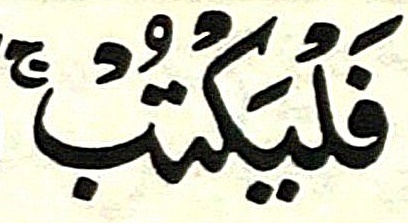 فَلْيَكْتُبْ ۚ